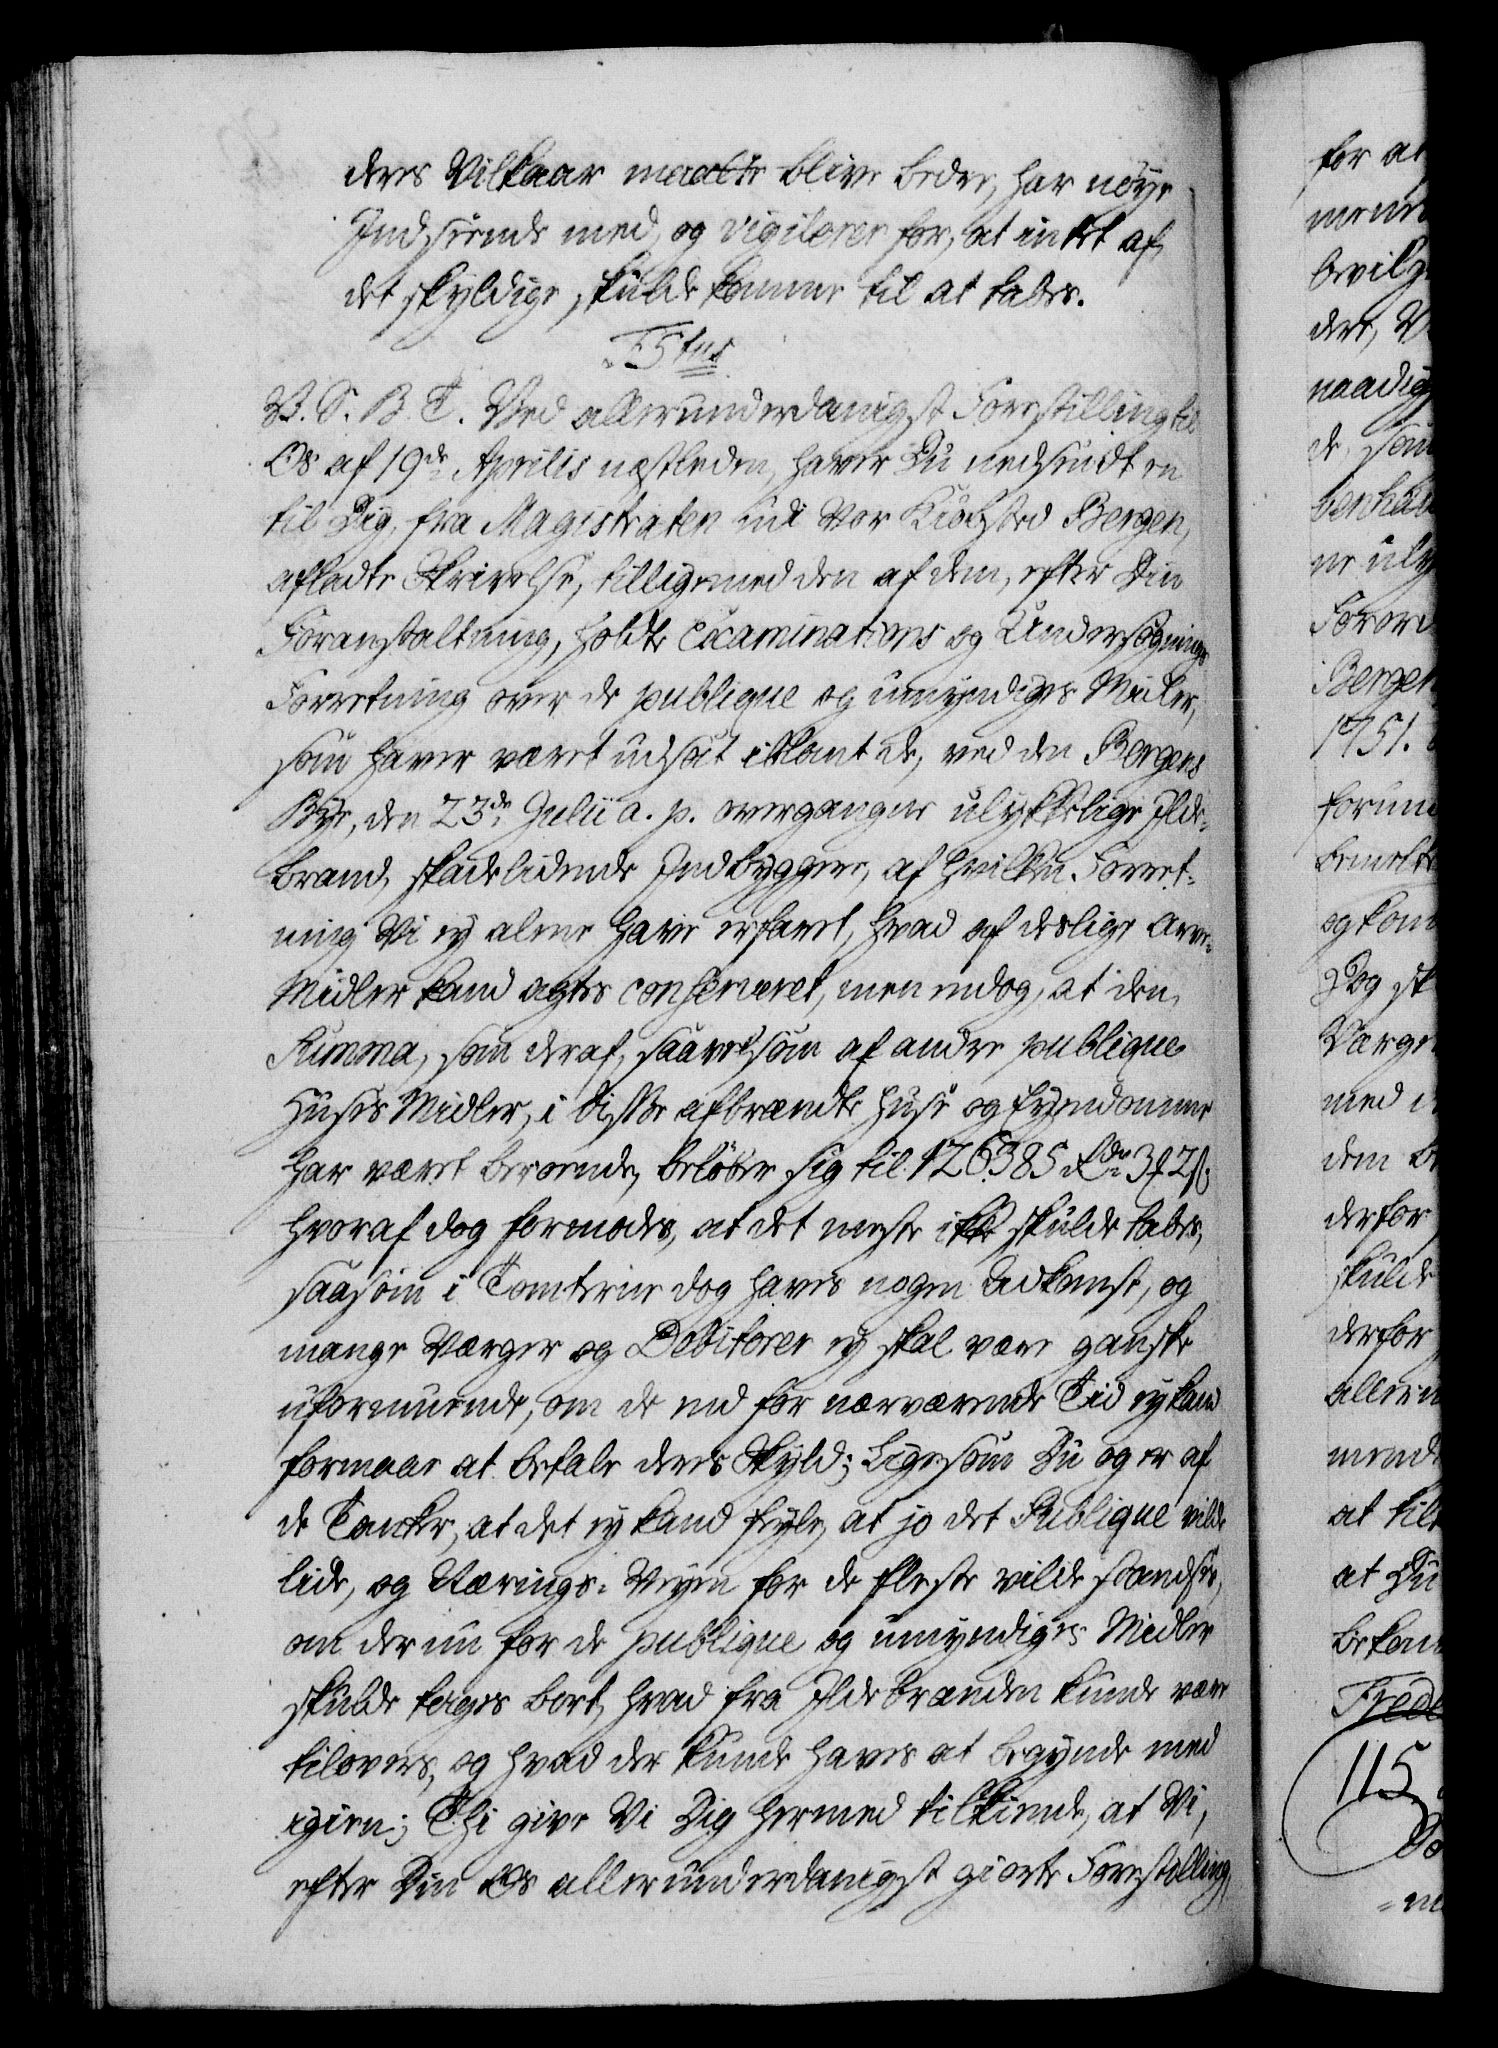 deres Vilkaar maatte blive bedre, har nøye
Indseende med, og vigilerer for, at intet af
det skyldige skulde komme til at tabes.
F5tus
V. S. B. T. Ved allerunderdanigst Forestilling til
Os af 19de Aprilis næstleden, haver Du nedsendt en
til Dig, fra Magistraten udi Vor Kiøbsted Bergen,
afladte Skrivelse, tilligemed den af dem, efter Din
Foranstaltning, holdte Examinations og Undersøgnings
Forretning over de publique og umyndiges Midler,
som haver været udsat iblant de, ved den Bergens
Bye, den 23de Julii a. p. overgangne ulykkelige Ilde-
brand, skadelidende Indbyggere, af hvilken Forret-
ning Vi ey alene have erfaret, hvad af deslige Arve-
Midler kand agtes conserveret, men endog, at den
Summa, som deraf, saavelsom af andre publique
Huses Midler, i disse afbrændte Huse og Eyendomme
har været beroende, beløber sig til 126385 rdr 3 2 s
hvoraf dog formodes, at det meste ikke skulde tabes,
saasom i Tomterne dog haves nogen Udkomst, og
mange Værger og Debitorer ey skal være ganske
uformuende, om de end for nærværende Tid ey kand
formaae at betale deres Skyld; Ligesom Du og er af
de Tanker, at det ey kand feyle, at jo det Publique vilde
lide, og Nærings-Veyen for de fleste vilde standses,
om der nu for de publique og umyndiges Midler
skulde tages bort, hvad fra Ildebranden kunde være
tilovers, og hvad der kunde haves at begynde med
igien; Thi give Vi Dig hermed tilkiende, at Vi,
efter Din Os allerunderdanigst giorte Forestilling,
for at
bevilge
naadig
Bergen
1751.
og kom
Dog sk
Værge
med
dem be
derfor
skulde
derfor
at
at Du
Frede
115